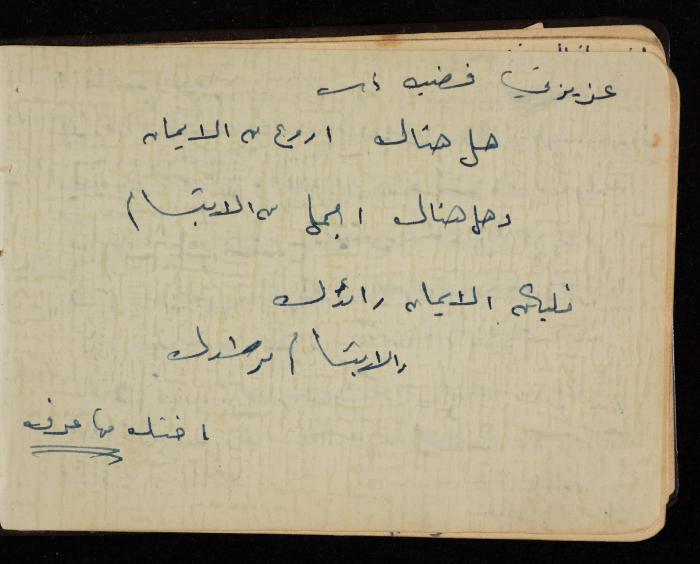 عزيزتي
هل هناك اروع من الايمان
وهل هناك اجمل من الابتسام
فليكن الايمان رائدك
والابتسام مرشدك
اختك مها عرف